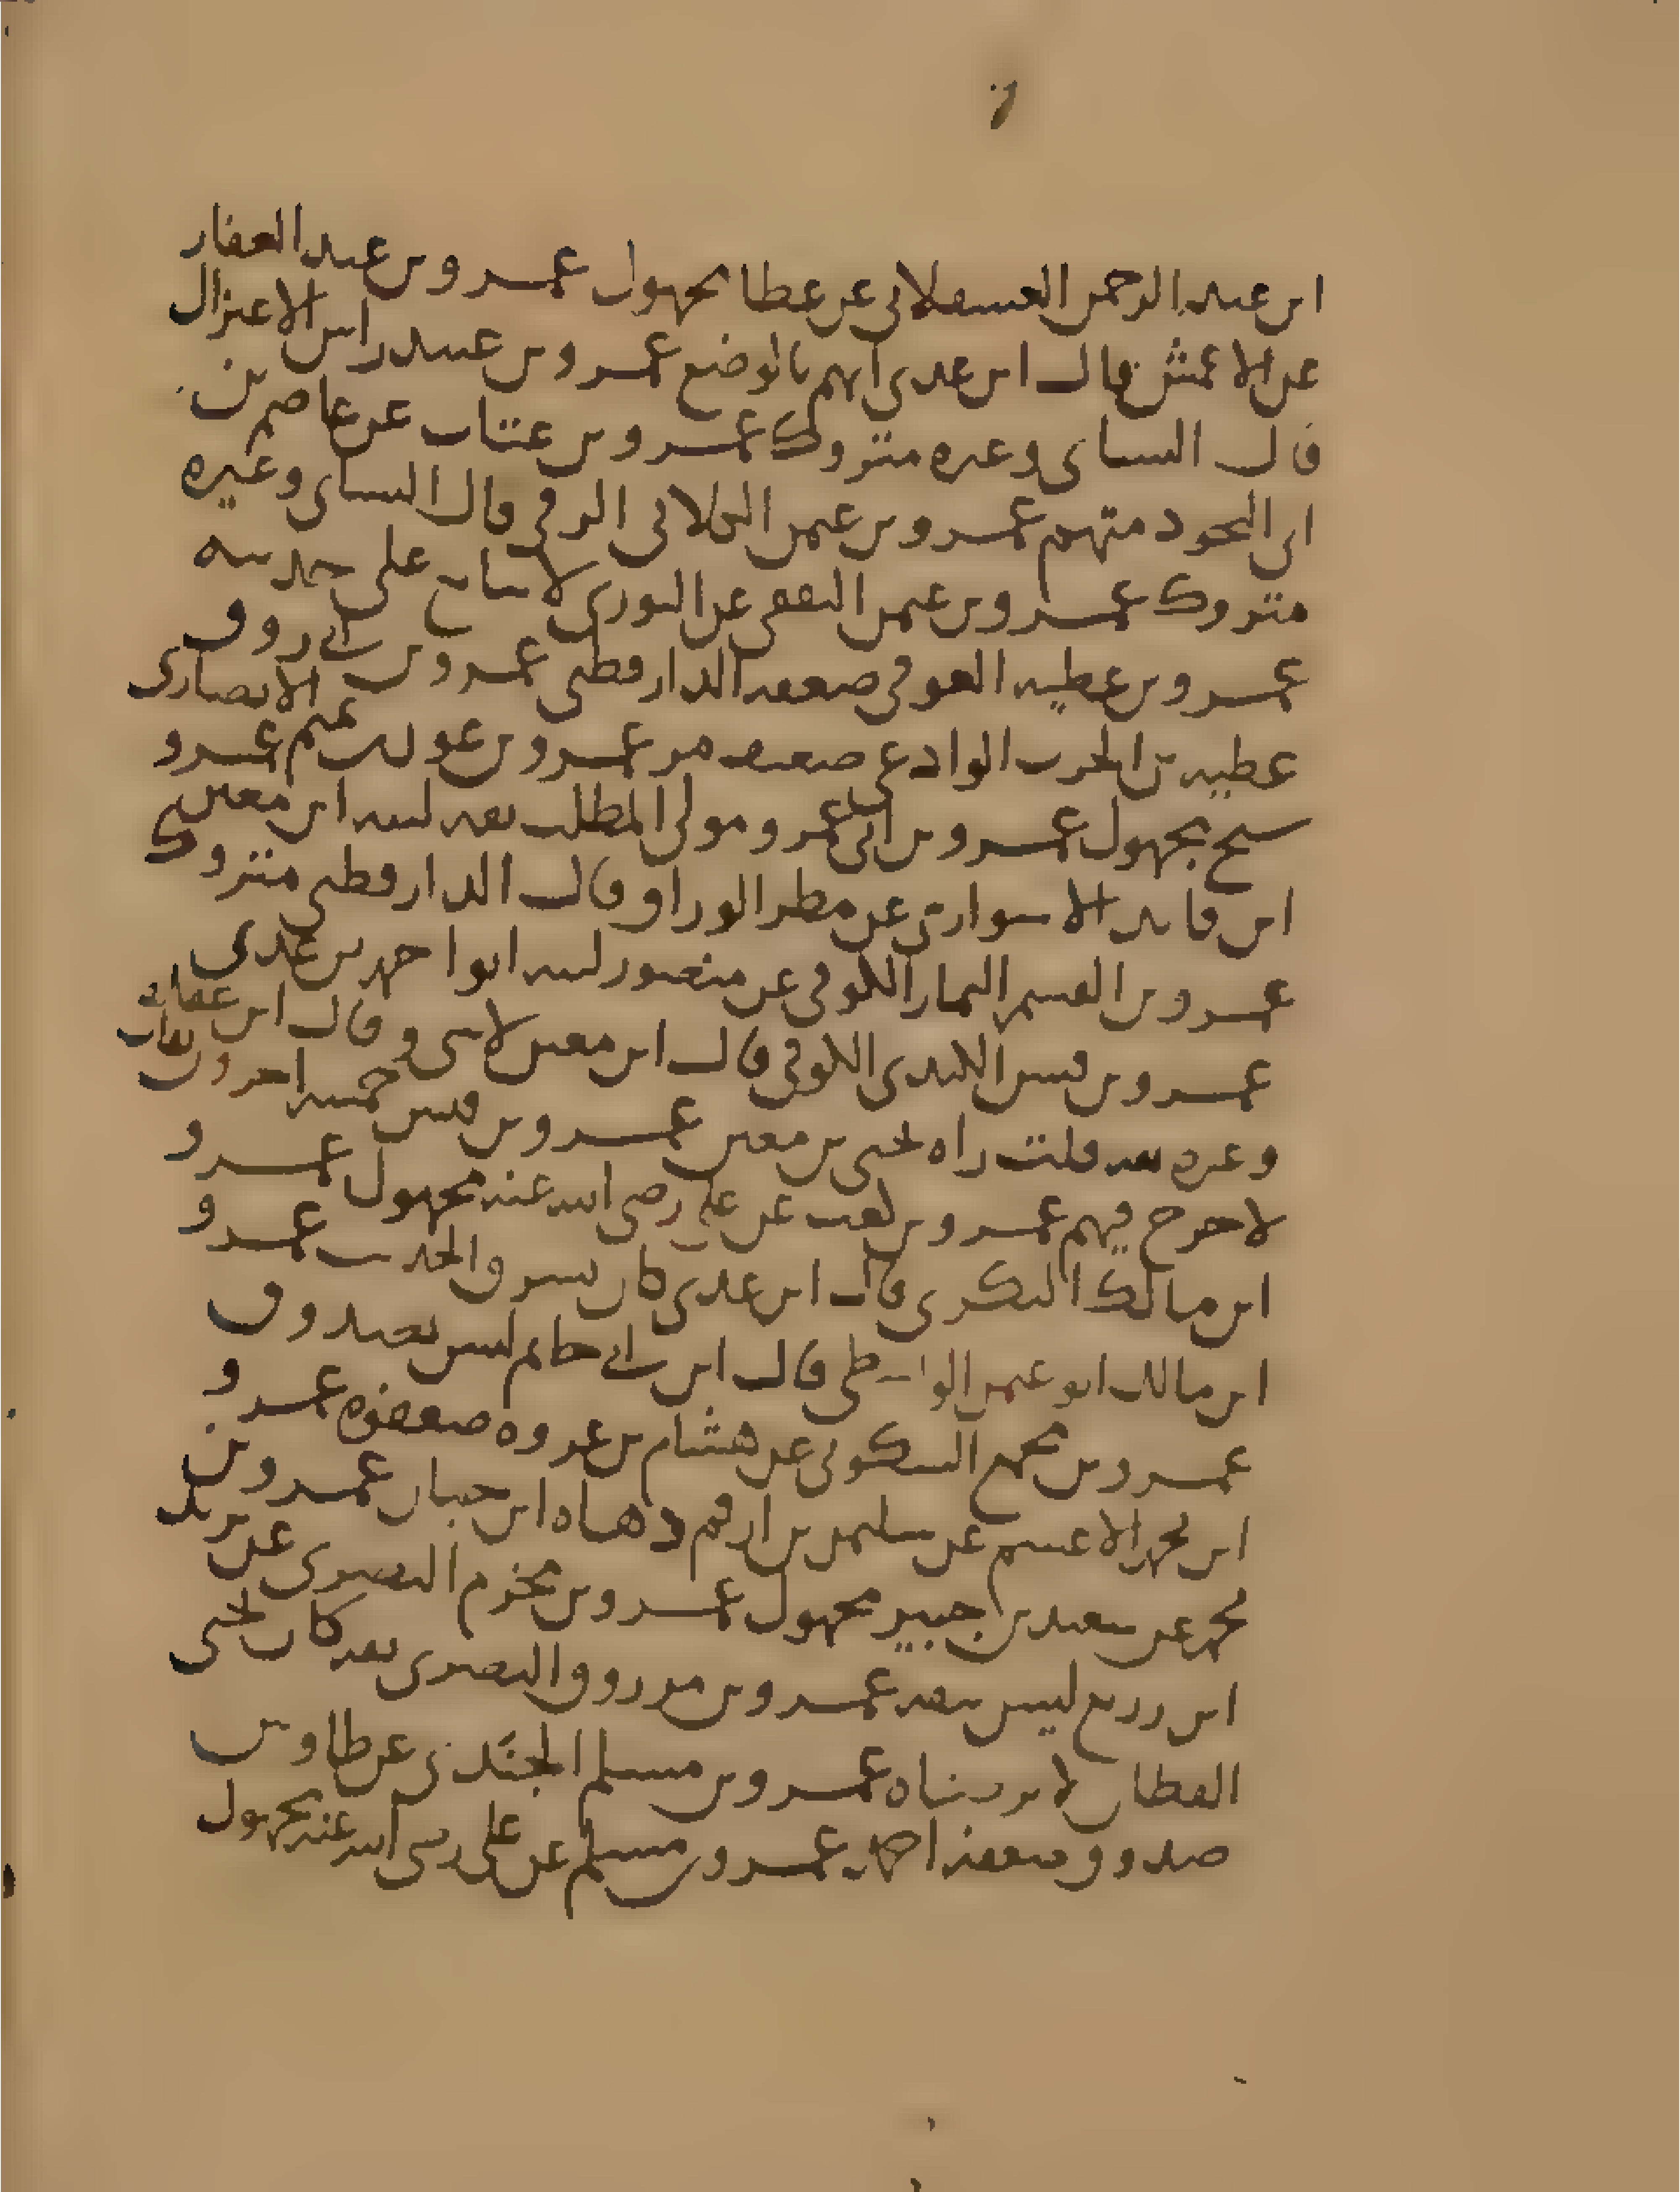 ابن عبد الرحمن العسقلاني عن عطا مجهول عمرو بن عبد الغفار
عن الاعمش قال ابن عدي اتهم بالوضع عمرو بن عبيد راس الاعتزال
قال النساي وغيره متروك عمرو بن عتاب عن عاصم بن
ابي النجود متهم عمرو بن عثمن الكلابي الرقي قال النساي وغيره
متروك عمرو بن عثمن الثقفي عن الثوري لا يتابع على حديثه
عمرو بن عطيه العوفي ضعفه الدارقطني عمرو بن ابي روق
عطيه بن الحرث الوادعي ضعيف مر عمرو بن عون بن تميم الانصاري عمرو
شيخ مجهول عمرو بن ابي عمرو مولى المطلب ثقه لينه ابن معين
ابن فايد الاسواري عن مطر الوراق قال الدارقطني متروك
عمرو بن القسم التمار الكوفي عن منصور لينه ابو احمد بن عدي
عمرو بن قيس الكندي الكوفي قال ابن معين لا شي وقال ابن
وغيره ثقه قلت راه يحيى بن معين عمرو بن قيس خمسه اخرون ثقات
لا جرح فيهم عمرو بن كعب عن علي رضي الله عنه مجهول عمرو
ابن مالك النكري قال ابن عدي كان يسرق الحديث عمرو
ابن مالك ابو عثمن الواسطي قال ابن ابي حاتم ليس بصدوق
عمرو بن مجمع السكوني عن هشام بن عروه ضعفوه عمرو
ابن محمد الاعسم عن سليمن بن ارقم وهاه ابن حبان عمرو بن
محمد عن سعيد بن جبير مجهول عمرو بن مخرم البصري عن يزيد
ابن زريع ليس بثقه عمرو بن مرزوق البصري ثقه كان يحيى
القطان لا يرضاه عمرو بن مسلم الجندي عن طاوس
صدوق ضعفه احمد عمرو بن مسلم عن علي رضي الله عنه مجهول